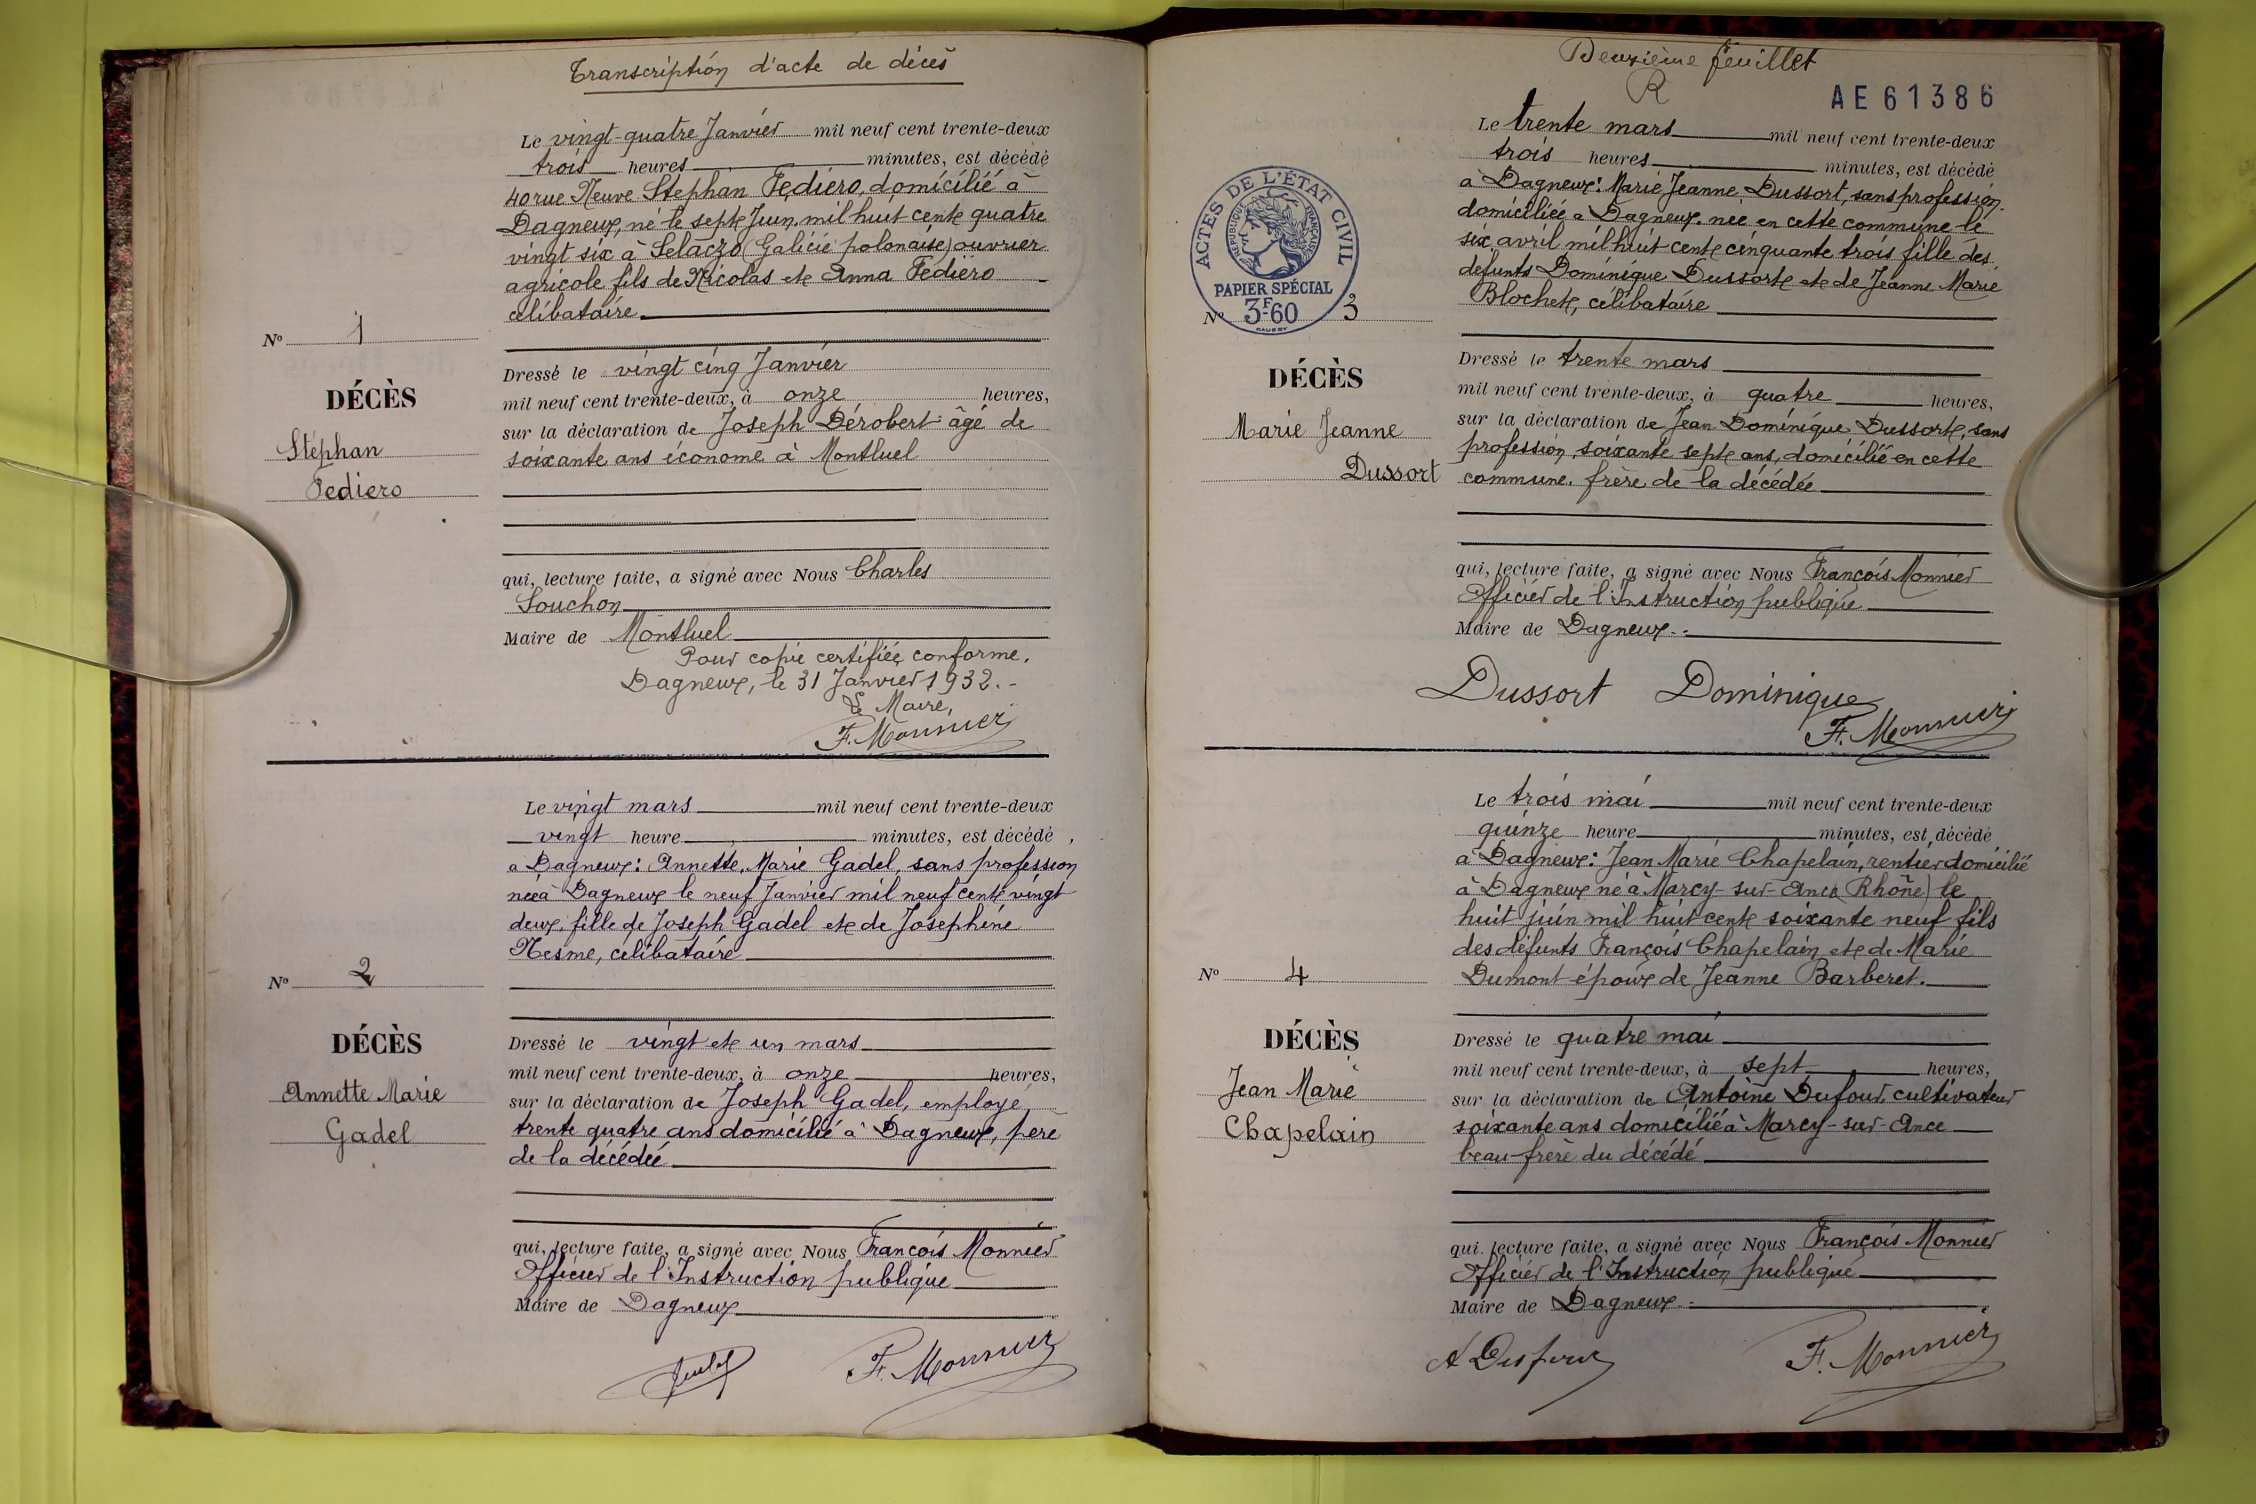 Transcription d'acte de décès
Le vingt-quatre Janvier mil neuf cent trente-deux
trois heures minutes, est décédé
40 rue Neuve Stéphan Fediero, domicilié à
Dagneux, né le sept Juin mil huit cent quatre
vingt six à Selaczo (Galicie polonaise) ouvrier
agricole fils de Nicolas et Anna Fediero
célibataire
N° 1
DÉCÈS
Stéphan
Fediero
Dressé le vingt cinq Janvier
mil neuf cent trente-deux, à onze heures,
sur la déclaration de Joseph Dérobert âgé de
soixante ans économe à Montluel
qui, lecture faite, a signé avec Nous Charles
Souchon
Maire de Montluel
Pour copie certifiée conforme.
Dagneux, le 31 Janvier 1932.-
Le Maire,
F. Monnier
Le vingt mars mil neuf cent trente-deux
vingt heure minutes, est décédé
à Dagneux: Annette, Marie Gadel, sans profession
née à Dagneux le neuf Janvier mil neuf cent vingt
deux, fille de Joseph Gadel et de Joséphine
Nesme, célibataire
N° 2
DÉCÈS
Annette Marie
Gadel
Dressé le vingt et un mars
mil neuf cent trente-deux, à onze heures,
sur la déclaration de Joseph Gadel, employé
trente quatre ans domicilié à Dagneux, père
de la décédée
qui, lecture faite, a signé avec Nous François Monnier
Officier de l'Instruction publique
Maire de Dagneux
F. Monnier
Deuxième feuillet
R
AE 61386
Le trente mars mil neuf cent trente-deux
trois heures minutes, est décédé
à Dagneux: Marie Jeanne Dussort, sans profession
domiciliée à Dagneux. née en cette commune le
six avril mil huit cent cinquante trois fille des
défunts Dominique Dussort et de Jeanne Marie
Blochet, célibataire
ACTES DE L'ÉTAT CIVIL
RÉPUBLIQUE FRANÇAISE
PAPIER SPÉCIAL
3F60
N° 3
DÉCÈS
Marie Jeanne
Dussort
Dressé le trente mars
mil neuf cent trente-deux, à quatre heures,
sur la déclaration de Jean Dominique Dussort, sans
profession, soixante sept ans, domicilié en cette
commune. frère de la décédée
qui, lecture faite, a signé avec Nous François Monnier
Officier de l'Instruction publique
Maire de Dagneux.-
Dussort Dominique
F. Monnier
Le trois mai mil neuf cent trente-deux
quinze heure minutes, est décédé
à Dagneux: Jean Marie Chapelain, rentier domicilié
à Dagneux né à Marcy-sur-Ance (Rhône) le
huit juin mil huit cent soixante neuf fils
des défunts François Chapelain et de Marie
Dumont époux de Jeanne Barberet.
N° 4
DÉCÈS
Jean Marie
Chapelain
Dressé le quatre mai
mil neuf cent trente-deux, à sept heures,
sur la déclaration de Antoine Dufour, cultivateur
soixante ans domicilié à Marcy-sur-Ance
beau-frère du décédé
qui, lecture faite, a signé avec Nous François Monnier
Officier de l'Instruction publique
Maire de Dagneux.-
F. Monnier